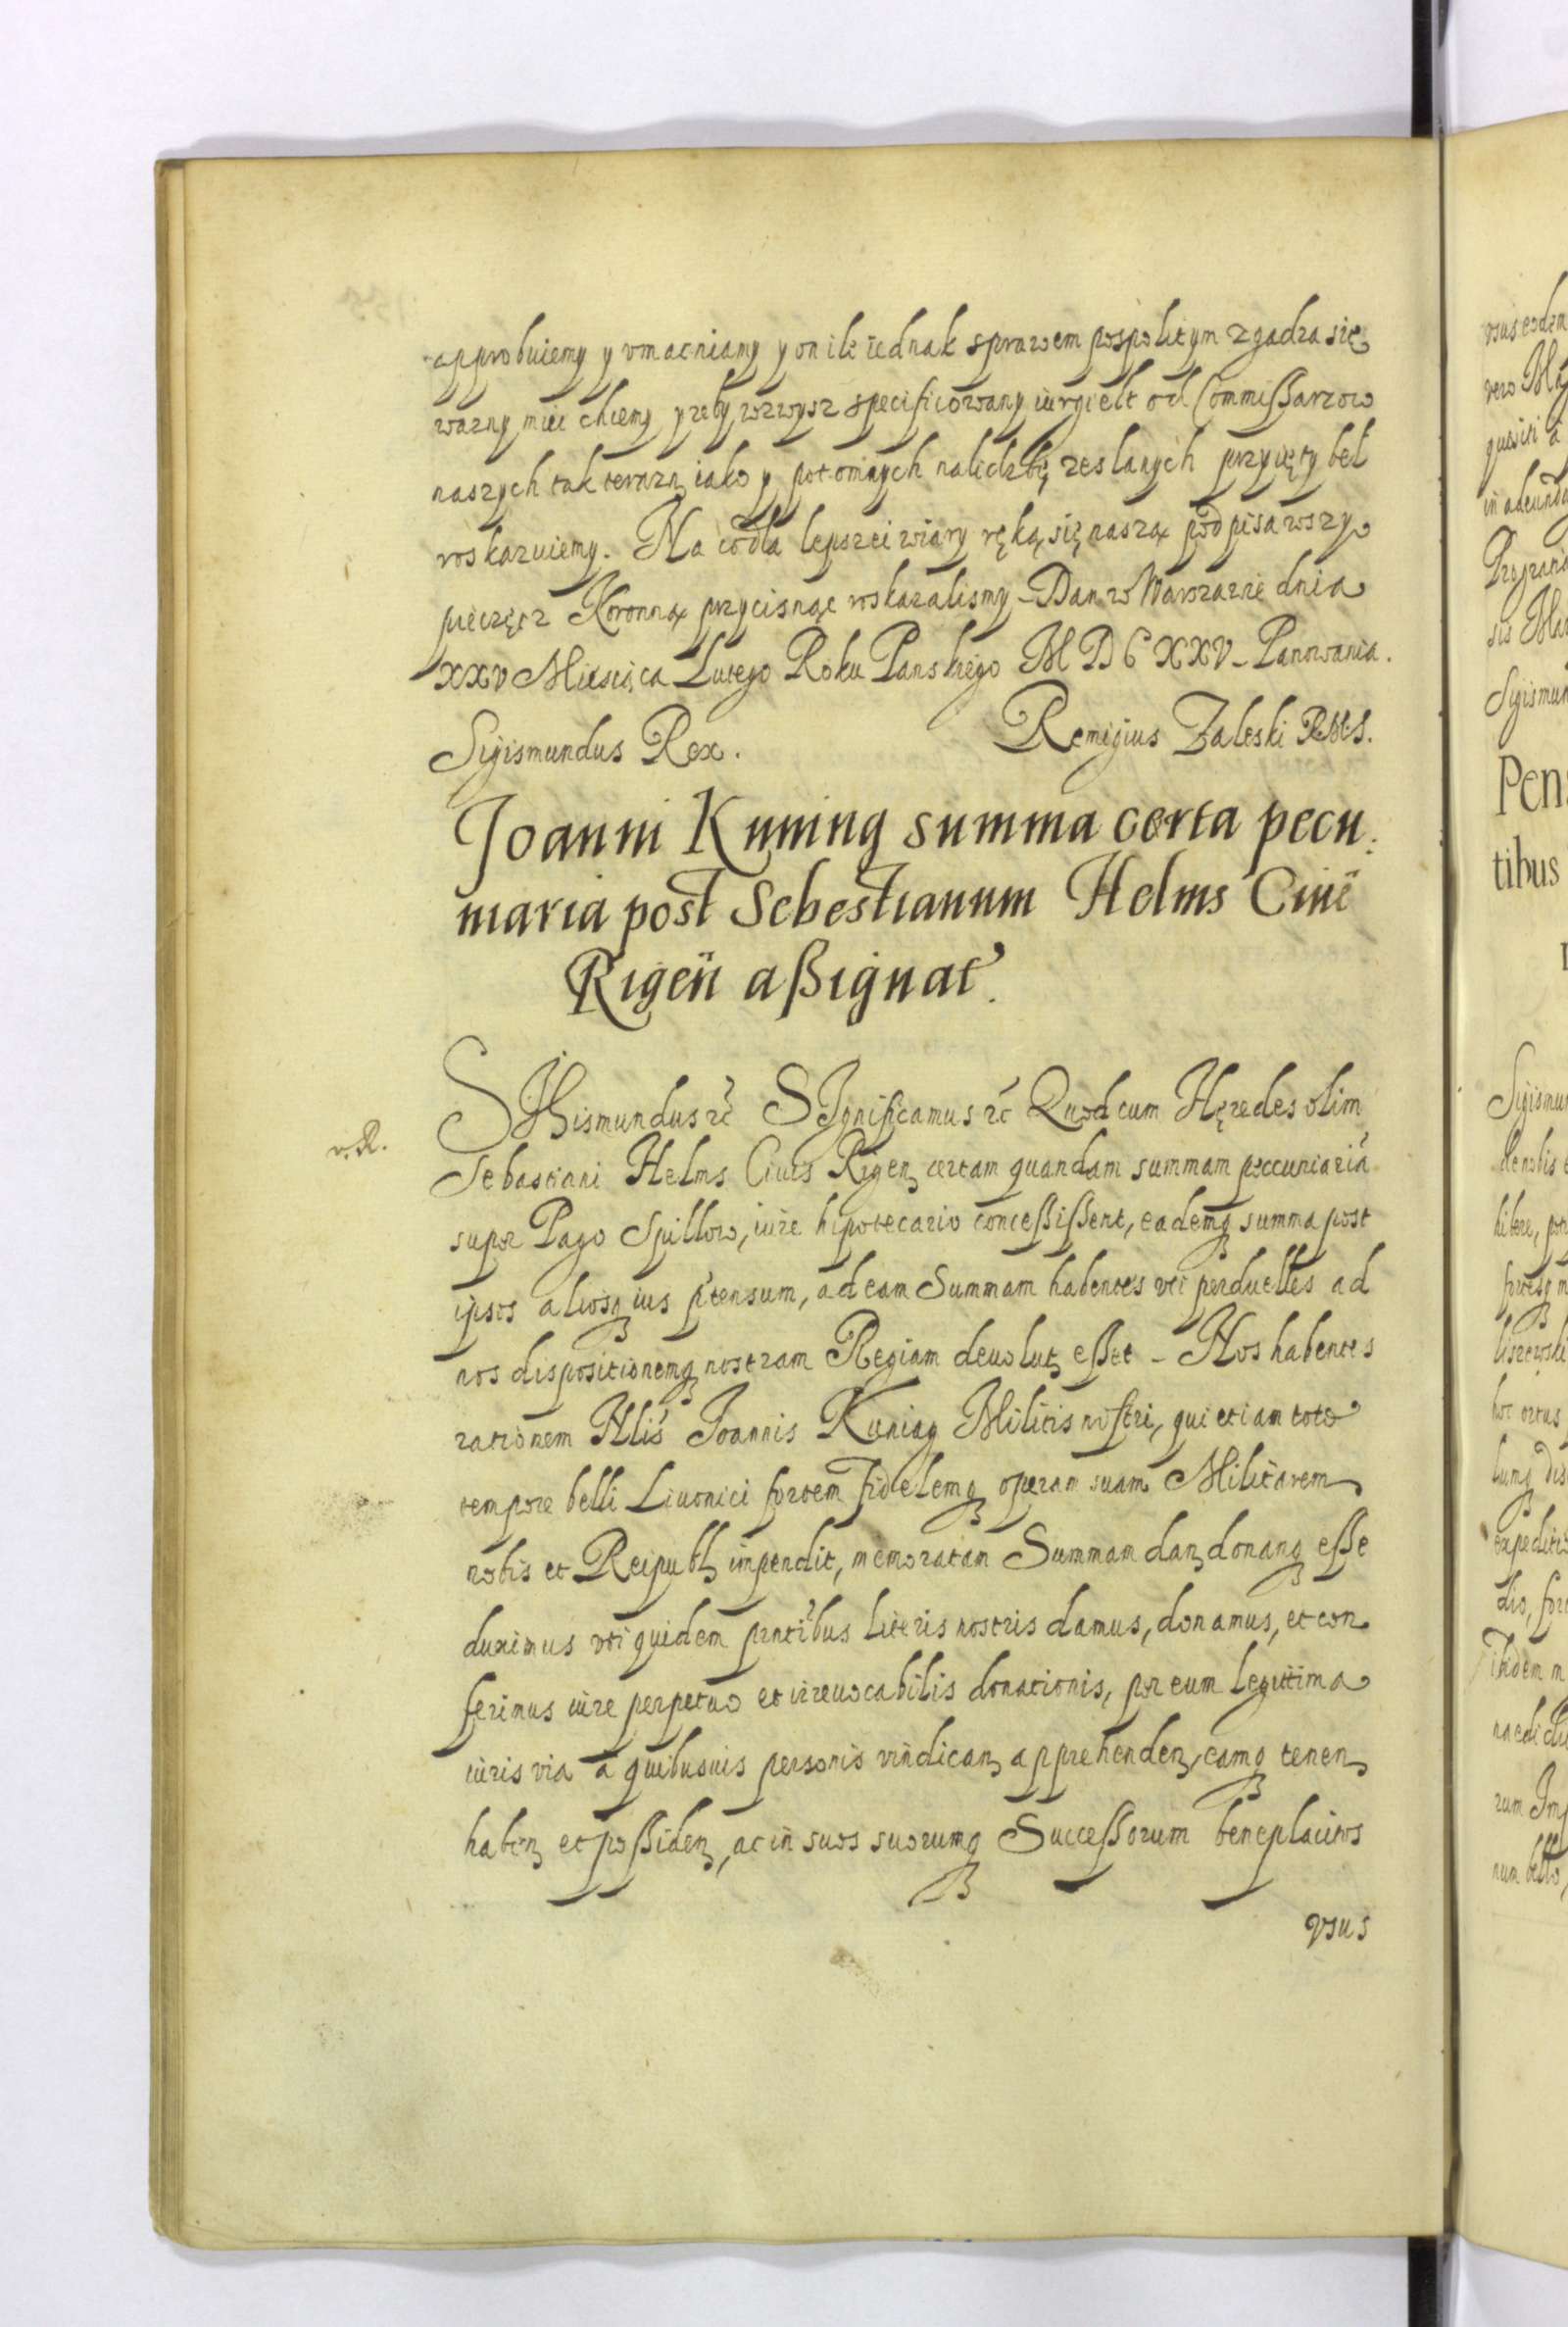 approbuiemy y vmacniamy y on ile iednak sprawem pospolitym zgadza się
wazny mieć chcemy y zeby wzwysz specificowany iurgielt od Commißarzow
naszych tak terazn iako y potomnych na lidzbę zeslanych przyięty beł
roskazuiemy. Na co dla lepszei wiary ręką się naszą podpisawszy
pieczęcz Koronną przycisnąc roskazalismy – Dan w Warszawie dnia
XXV Miesiąca Lutego Roku Panskiego MDCXXV – Panowania.
Sigismundus Rex. Remigius Zaleski RMtS.
Joanni Kuning summa certa pecu
niaria post Sebestianum Helms Ciuē
Rigeñ aßignat.
v. R.
SIGismundus &c SIgnificamus &c Quod cum Hęredes olim
Sebastiani Helms Ciuis Rigen certam quandam summam peccuniariā
super Pago Spillow, iure hipotecario conceßißent, eademq summa post
ipsos aliosq ius ptensum, ad eam Summam habentes vti perduelles ad
nos dispositionemq nostram Regiam deuolut eßet – Nos habentes
rationem Nlis Joannis Kuning Militis nostri, qui etiam toto
tempore belli Liuonici fortem fidelemq operam suam Militarem
nobis et Reipubl impendit, memoratam Summam dan donanq eße
duximus vti quidem pntibus literis nostris damus, donamus, et con
ferimus iure perpetuo et irreuocabilis donationis, per eum legitima
iuris via a quibusuis personis vindican apprehenden, eamq tenen
haben et poßiden, ac in suos suorumq Succeßorum beneplacitos
vsus